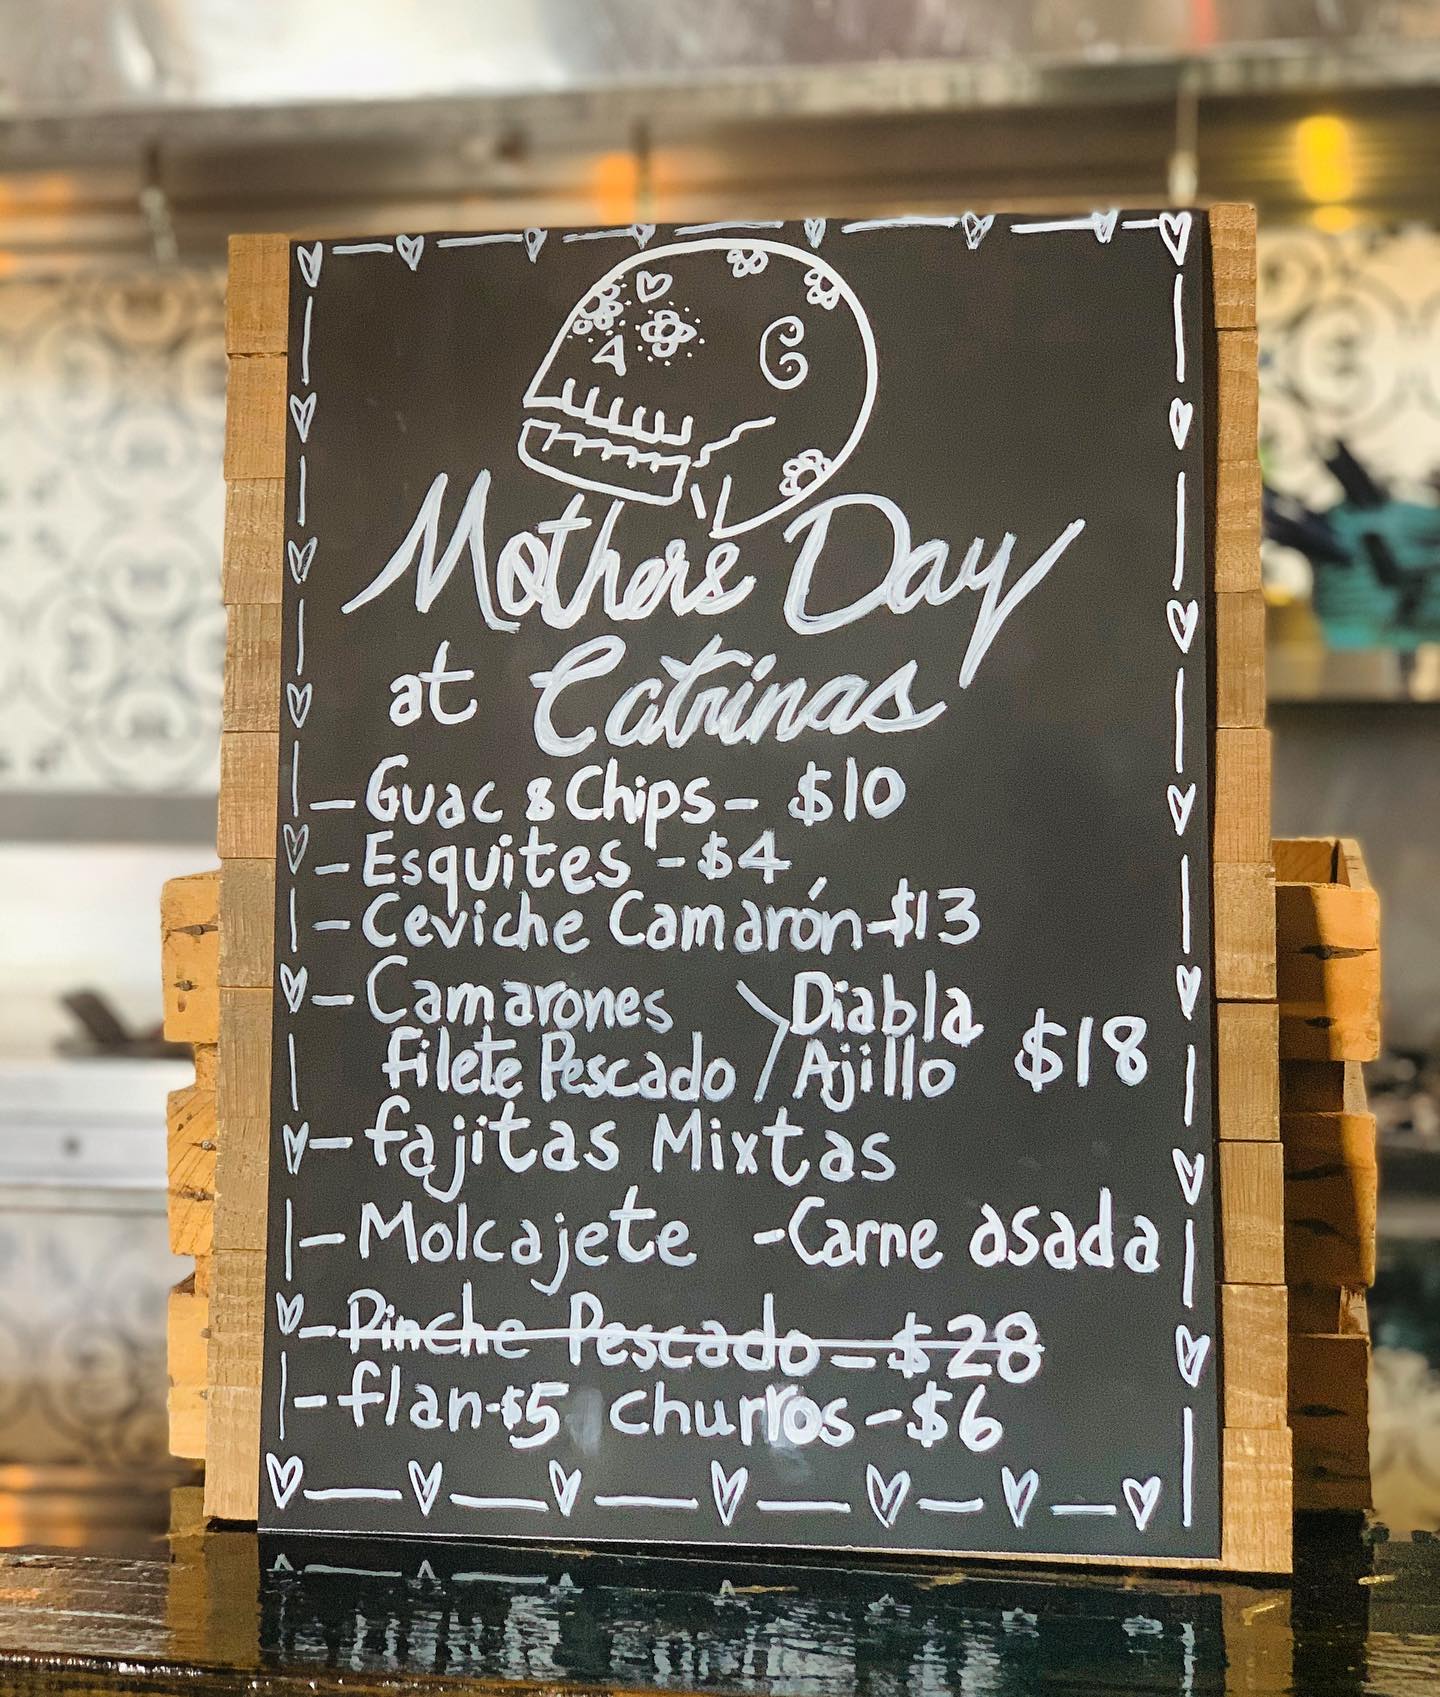 Mother's Day
at Catrinas
- Guac & Chips - $10
- Esquites - $4
- Ceviche Camarón - $13
- Camarones > Diabla $18
filete Pescado Ajillo
- fajitas Mixtas
- Molcajete - Carne asada
- Pinche Pescado - $28
- flan - $5 churros - $6